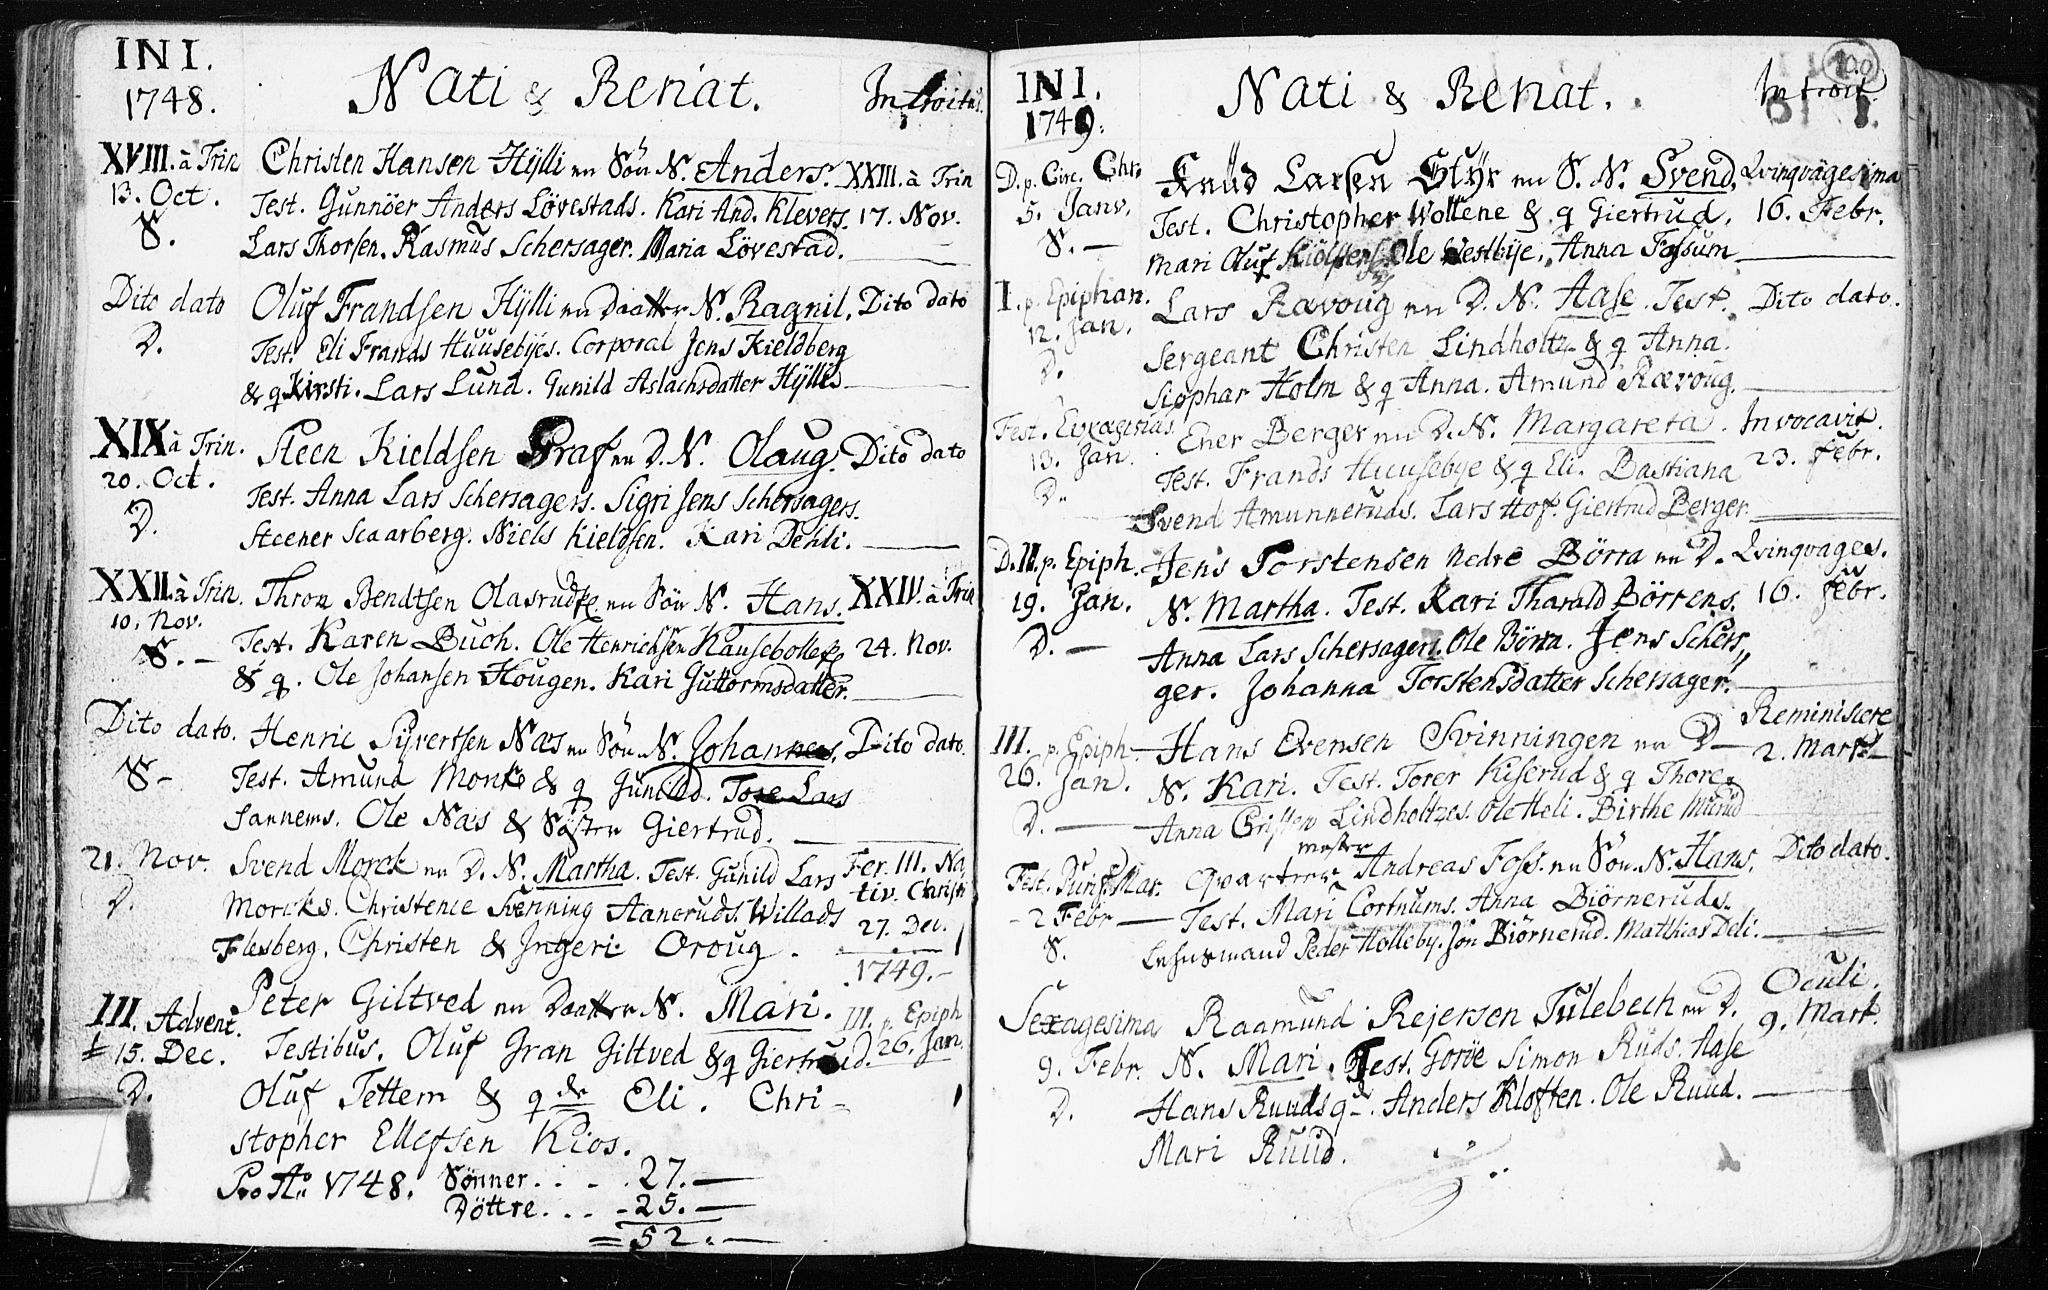 INI.
1748.
Nati & Renat.
Introitus.
XVIII. à Trin
13. Oct.
S.
Christen Hansen Hÿlli en Sön N. Anders.
Test. Gunnöer Anders Lövestads. Kari And. Klevers.
Lars Thorsen. Rasmus Schersager. Maria Lövestad.
XXIII. à Trin
17. Nov.
Dito dato
D.
Oluf Frandsen Hÿlli en Daatter N. Ragnil.
Test. Eli Frands Huusebÿes. Corporal Jens Kieldberg
& q Kirsti. Lars Lund. Gunild Aslachsdatter Hÿllis
Dito dato
XIX à Trin.
20. Oct.
D.
Steen Kieldsen Graf en D. N. Olaug.
Test. Anna Lars Schersagers. Sigri Jens Schersagers.
Steener Scaarberg. Niels Kieldsen. Kari Dehli.
Dito dato
XXII. à Trin.
10. Nov.
S.
Thron Bendtsen Olasrudtz en Sön N. Hans.
Test. Karen Buch. Ole Henrichsen
& q. Ole Johansen Hougen. Kari Guttormsdatter.
XXIV. à Trin
24. Nov.
Dito dato.
S-
Henric Sÿvertsen Næs en Sön N. Johannes.
Test. Amund Monke & q Gunild. Tore Lars
Sannems. Ole Næs & Söster Giertrud.
Dito dato.
21. Nov.
D.
Svend Morck en D. N. Martha. Test. Gunild Lars
Morcks. Christence Svenning Aaneruds. Willads
Flesberg. Christen & Ingeri Oroug.
Fer. III. Na,
tiv. Christi
27. Dec.
1749.-
III. Advent.
15. Dec.
D.
Peter Giltved en Daatter N. Mari.
Testibus. Oluf Gran Giltved & q Giertruid.
Oluf Tettem & q de Eli. Chri-
stopher Ellefsen Kios.
III. p. Epiph
26. Jan.
Pro Ao. 1748. Sönner . . . . 27.-
Döttre . . . - 25.-
= 52.-
INI.
1749.
Nati & Renat.
Introit.
100
D. p. Circ. Chr.
5. Janv.
S.-
Knud Larsen Stÿr en S. N. Svend.
Test. Christopher Wollene & q Giertrud.
Mari Oluf Ole Westbÿe. Anna Fossum
Qvinqvägesima
16. Febr.
I. p. Epiphan.
12. Jan.
D.
Lars Rævoug en D. N. Aase. Test.
Sergeant Christen Lindholtz & q Anna.
Siophar Holm & q Anna. Amund Rævoug.
Dito dato.
13. Jan.
D.
Ener Berger en D. N. Margareta.
Test. Frands Huusebye & q Eli. Bastiana
Svend Amunneruds. Lars Hof. Giertrud Berger.
Invocavit.
23. Febr.
D. II. p. Epiph.
19. Jan.
D.-
Jens Torstensen nedre Börra en D.
N. Martha. Test. Kari Tharald Börrens.
Anna Lars Schersagers. Ole Börra. Jens Schers,,
ger. Johanna Torstensdatter Schersager.
Qvinqvages.
16. Febr.
III. p. Epiph-
26. Jan.
D.
Hans Evensen Svinningen en D-
N. Kari. Test. Torer Kiserud & q Thore.
Anna Christen Lindholtzes. Ole Heli. Birthe Murud
Reminiscere
2. Mart.
Fest. Purif. Mar.
- 2 Febr -
S.
mester
Qvarteer Andreas Foss. en Sön. N. Hans.
Test. Mari Cortnums. Anna Biörneruds.
Lehnsmand Peder Holleby. Jon Biörnerud. Matthias Deli.
Dito dato.
Sexagesima
9. Febr.
D.
Raamund Rejersen Tulebech en D.
N. Mari. Test. Goröe Simon Ruds. Aase
Hans Ruuds q-. Anders Kloften. Ole Ruud.
Mari Ruud.
Oculi.
9. Mart.